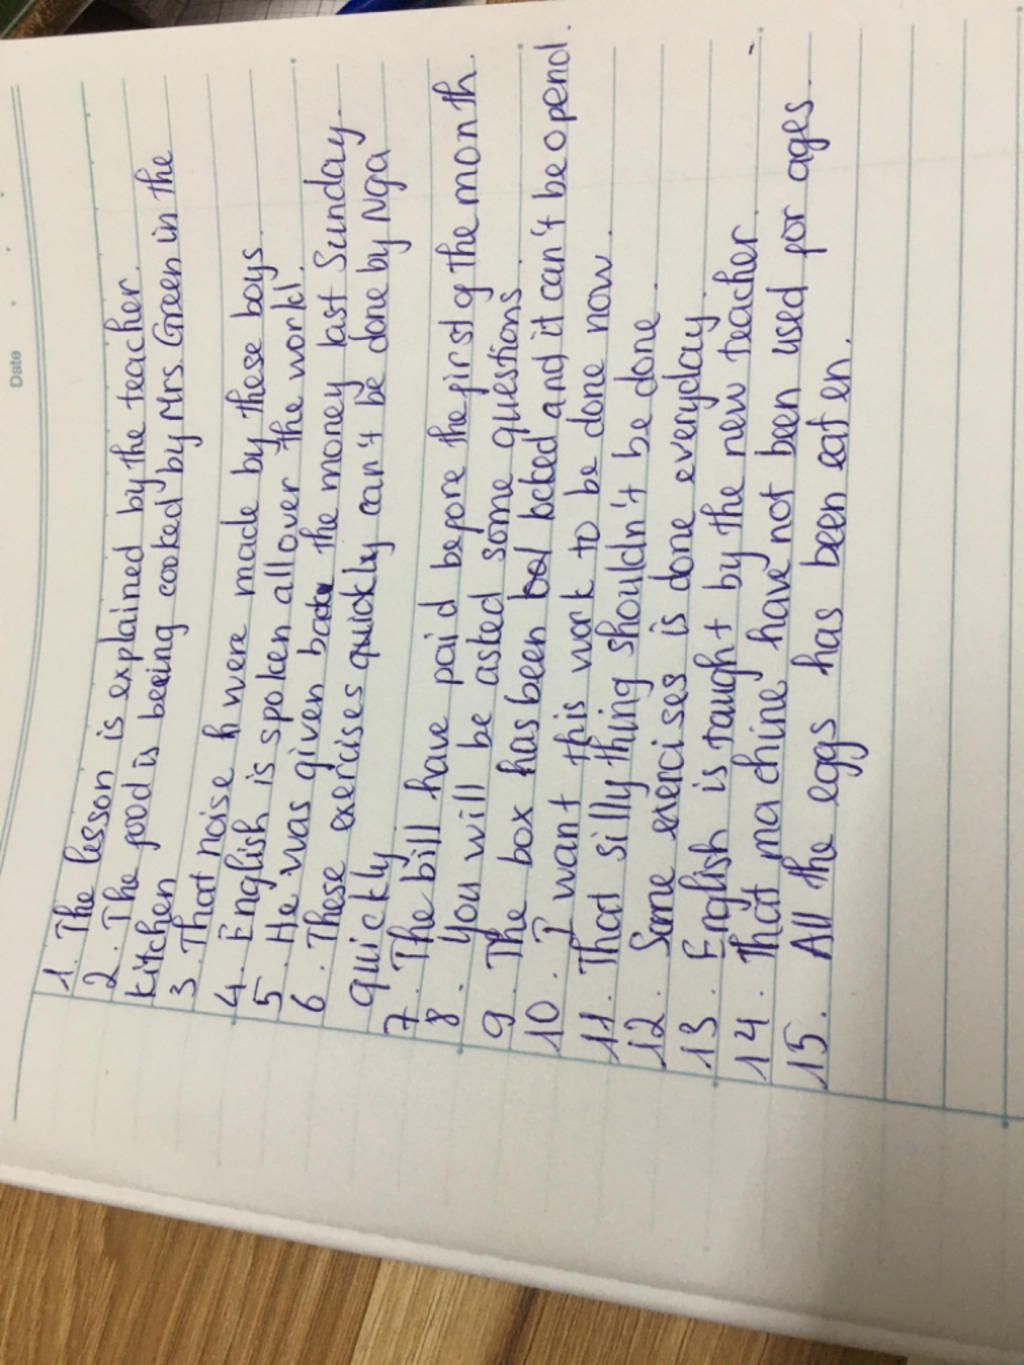 Date
1. The lesson is explained by the teacher.
2. The food is beeing cooked by Mrs. Green in the
kitchen
3. That noise were made by these boys
4. English is spoken all over the world.
5. He was given the money last Sunday.
6. These exercises quickly can't be done by Nga
quickly
7. The bill have paid before the first of the month.
8. You will be asked some questions.
9. The box has been locked and it can't be opend.
10. I want this work to be done now.
11. That silly thing shouldn't be done.
12. Some exercises is done everyday.
13. English is taught by the new teacher.
14. That machine have not been used for ages
15. All the eggs has been eaten.